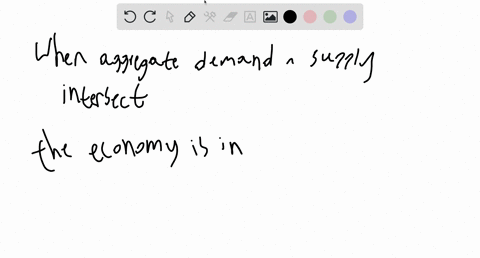 When aggregate demand n supply
intersect
the economy is in